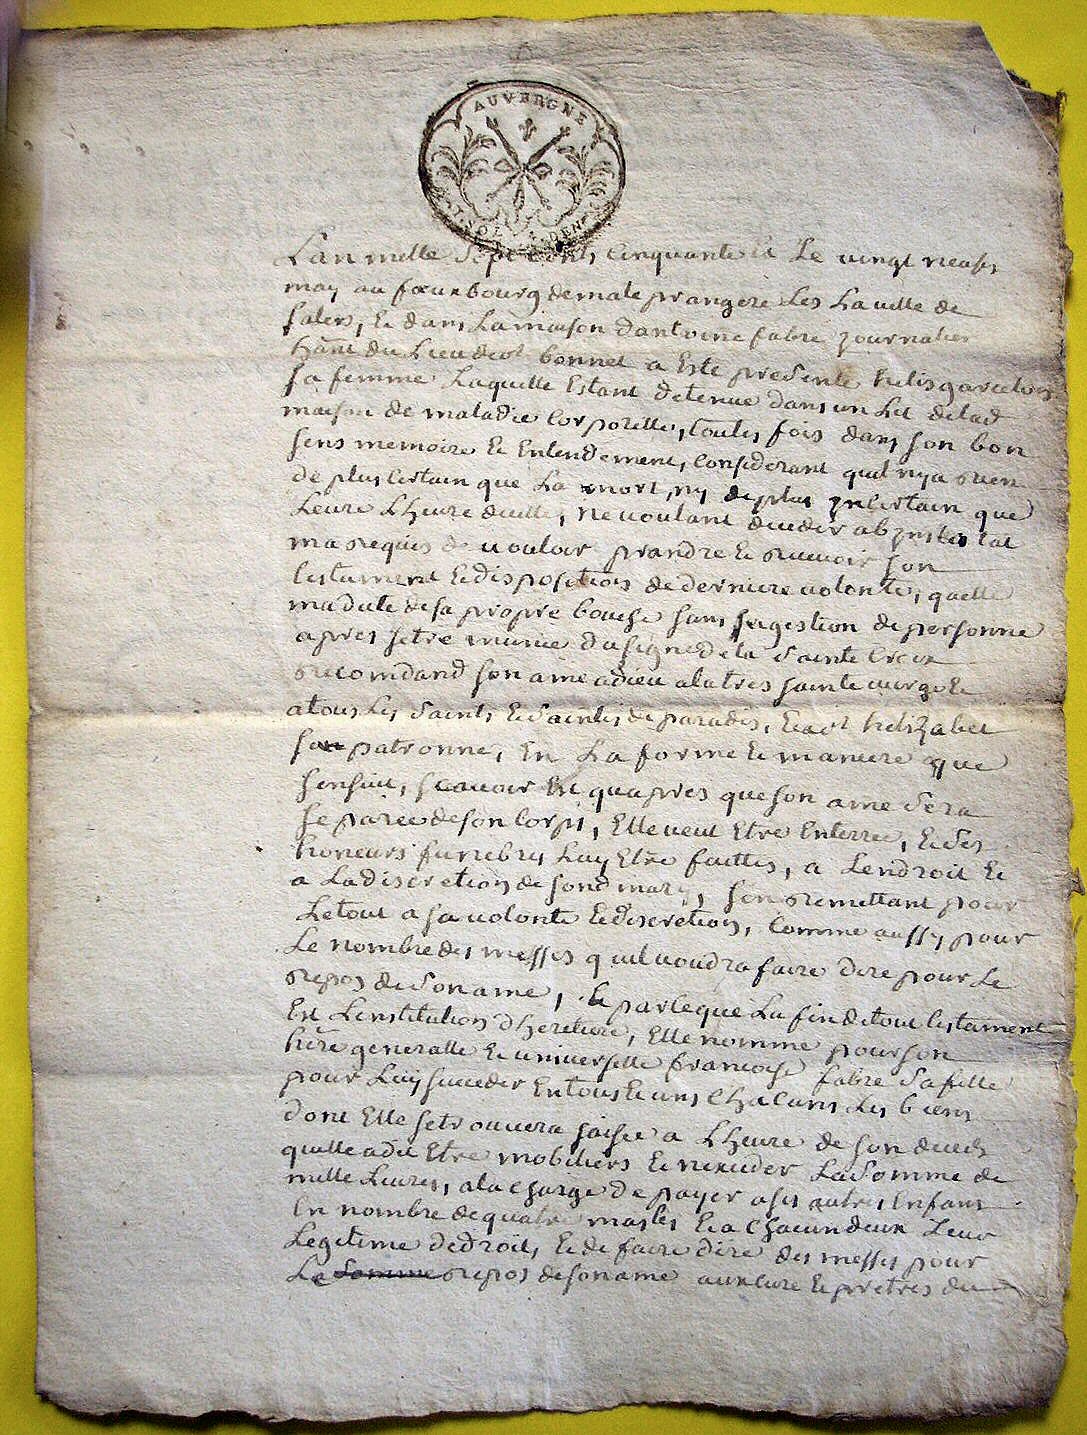 AUVERGNE
Lan mille Sept Cents Cinquante Le vingt neufs
may au fauxbourg demale prangere Les La ville de
Salers, Et dans La maison dantoine fabre journalier
hãnt du Lieu de bonnet a Este presente helis
sa femme Laquelle Estant detenue dans un Lit de lad
maison de maladie Corporelle, toutes fois dans son bon
sens memoire Et Entendement, Considerant quil nya rien
de plus Certain que La mort ny de plus jncertain que
Leure Lheure dicelle, ne voulant deceder abjntestat
ma requis de vouloir prandre Et recevoir son
testament Et dispositions de derniere volonté, quelle
ma dicté de sa propre bouche sans sugestion de personne
apres setre munie du signe de la Sainte Croix
recomdand son ame adieu ala tres sainte vierge Et
atous Les Saints Et Saintes de paradis, Et a st helizabet
sa patronne, En La forme Et maniere que
sensuit, scavoir Est quapres que son ame Sera
separée de son Corps, Elle veut Etre Enterrée, Et Ses
honeurs funebres Luy Etre faittes, a Lendroit Et
a La discretion de sond mary, sen remettant pour
Letout a sa volonté Et discretion, Comme aussy pour
Le nombre des messes quil voudra faire dire pour Le
repos de Son ame, Et parceque La fin de tout testament
Est Linstitution dheretiere, Elle nomme pour son
hẽre generalle Et universelle francoise fabre Sa fille
pour Luy succeder En tous Et uns Chacuns Les biens
dont Elle se trouvera saisie a Lheure de son deceds
quelle a dit Etre mobiliers Et nexceder La Somme de
mille Livres, ala charge de payer a ses autres Enfans
En nombre de quatre masles Et a Chacun deux Leur
Legitime de droit, Et de faire dire des messes pour
Le Somme repos de son ame aux Cure Et pretres du